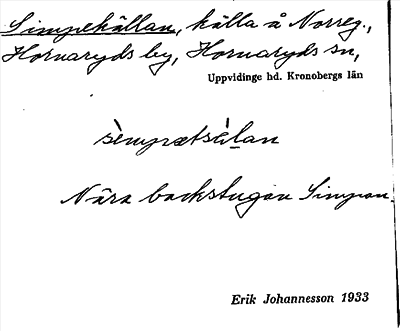 Simpekällan, källa å Norreg.,
Hornaryds by, Hornaryds sn,
Uppvidinge hd. Kronobergs län
sèmpætsèlan
Nära backstugan Simpan.
Erik Johannesson 1933